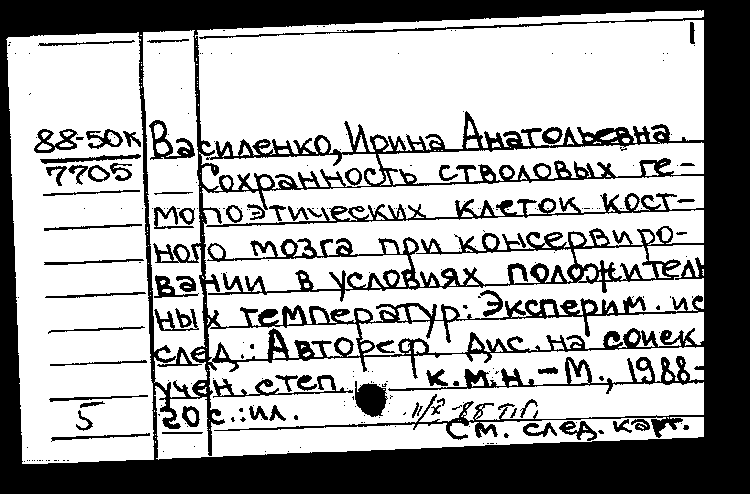 1
88-50к Василенко, Ирина Анатольевна.
7705 Сохранность стволовых ге-
мопоэтических клеток кост-
ного мозга при консервиро-
вании в условиях положитель
ных температур: Эксперим. ис
след.: Автореф. дис. на соиск.
учен. степ. к.м.н.-М., 1988-
5 20 с.:ил.
См. след. карт.